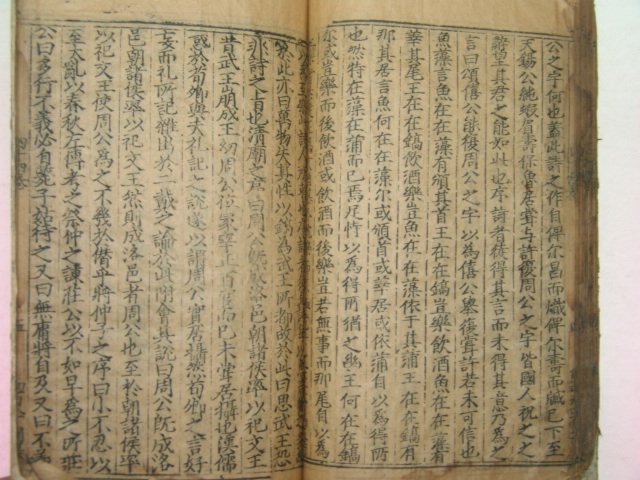 公之字何也蓋此詩之作自俾尔昌而熾俾尔壽而臧已下至
天錫公純嘏眉壽保魯居常與許復周公之宇皆國人祝之之
望其君之能如此也序詩者徒得其言而未得其意乃為之
言曰頌僖公能復周公之宇以為僖公墓復常許若未可信也
魚藻言魚在在藻有頒其首王在在鎬豈樂飲酒魚在在藻有
莘其尾王在在鎬飲酒樂豈魚在在藻依于其蒲王在在鎬有
那其居言魚何在在藻尔或頒首或莘尾或依蒲自以為得所
也然特在藻在蒲而已焉足恃以為得所猶之幽王何在在鎬
尔或豈樂而後飲酒或飲酒而後樂豈若無事而那居自以為
案此亦曰萬物失其性以鎬為武王所都故於此曰思武王恐
非詩之旨也清廟之序曰周公既成洛邑朝諸侯率以祀文王
昔武王崩成王幼周公位冢宰正百官而已未嘗居攝也漢儒
惑於荀卿與夫禮記之說遂以謂周公實居攝然荀卿之言好
妄而礼所記雜出於二戴之論於此附會其說曰周公既成洛
邑朝諸侯率以祀文王然則成洛邑者周公也至於朝諸侯率
以祀文王使周公為之不幾於僭乎將仲子之序曰小不忍以
至大亂以春秋左傳考之祭仲之諫莊公以不如早為之所莊
公曰多行不義必自斃子姑待之又曰無庸將自及又曰不義